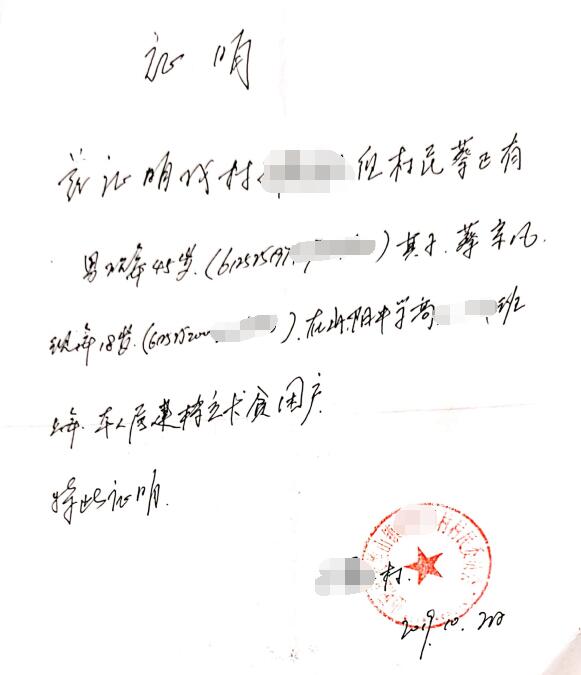 证明
兹证明我村 组村民蔡正有
男现年45岁.(612525197 )其子.蔡宗
现年18岁.(612525200 ).在山阳中学高 班
上学.本人属建档立卡贫困户.
特此证明.
村.
村村民委员会
2019.10.